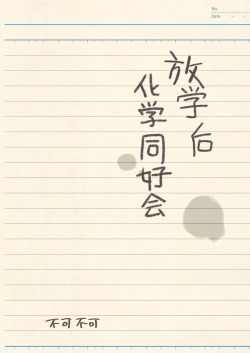 No.
Date　・　・
放学后
化学同好会
不可不可